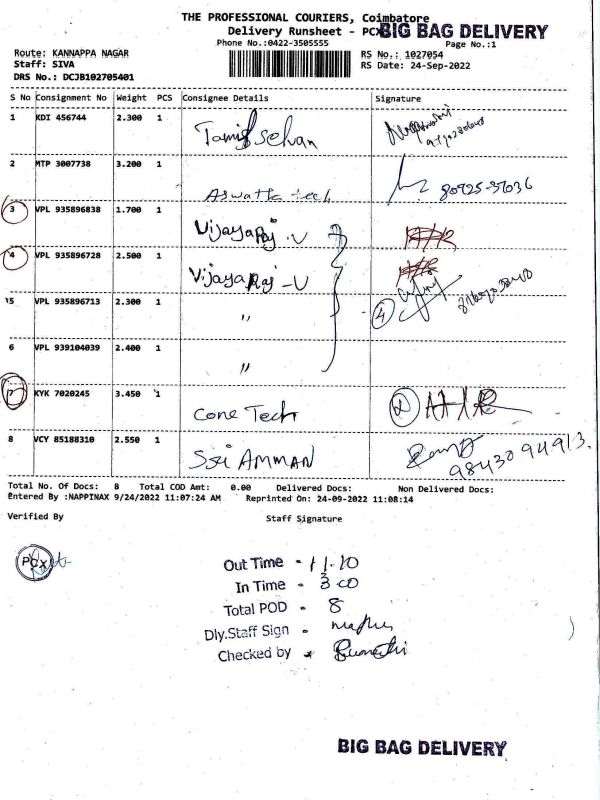 THE PROFESSIONAL COURIERS, Coimbatore
Delivery Runsheet - PCX
BIG BAG DELIVERY
Phone No.:0422-3505555
Page No.:1
Route: KANNAPPA NAGAR
RS No.: 1027054
Staff: SIVA
RS Date: 24-Sep-2022
DRS No.: DCJB102705401
S No Consignment No Weight PCS Consignee Details Signature
1 KDI 456744 2.300 1
2 MTP 3007738 3.200 1 Aswatta tech 80725-37036
3 VPL 935896838 1.700 1 VijayaRaj .V
4 VPL 935896728 2.500 1 VijayaRaj -V
5 VPL 935896713 2.300 1 " 4
6 VPL 939104039 2.400 1 "
7 KYK 7020245 3.450 1 Cone Tech
8 VCY 85188310 2.550 1 Sri AMMAN 9843094913.
Total No. Of Docs: 8 Total COD Amt: 0.00 Delivered Docs: Non Delivered Docs:
Entered By :NAPPINAX 9/24/2022 11:07:24 AM Reprinted On: 24-09-2022 11:08:14
Verified By Staff Signature
PCX
Out Time - 11.10
In Time - 3.00
Total POD - 8
Dly.Staff Sign -
Checked by
BIG BAG DELIVERY